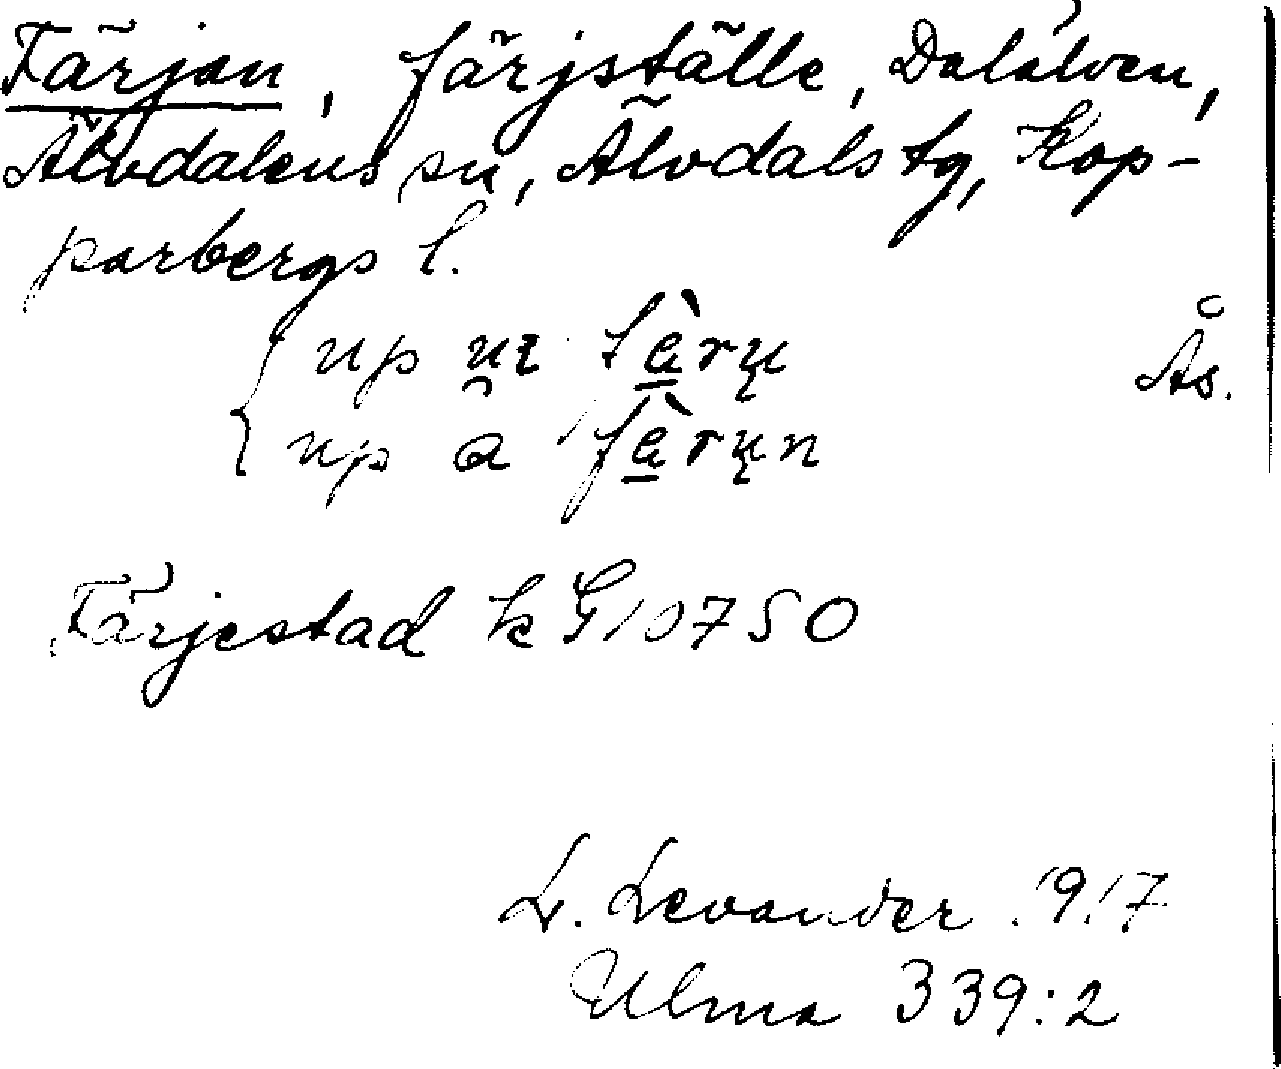 Färjan, färjställe, Dalälven,
Älvdalens sn, Älvdals tg, Kop-
parbergs l.
up
Ås.
up a
Färjestad k G 10750
L. Levander 1917
Ulma 339:2